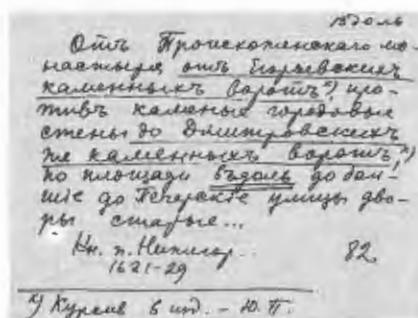 вдоль
Отъ Происхоженскаго мо-
настыря отъ Егорьевскихъ
каменныхъ воротъ*), про-
тивъ каменые городовые
стены до Дмитровскихъ
же каменныхъ воротъ,*)
по площади въдоль до боль-
шіе до Печерскіе улицы дво-
ры старые...
Кн. п. Нижегор..
1621-29 82.
*) Курсив в изд. – Ю. П.